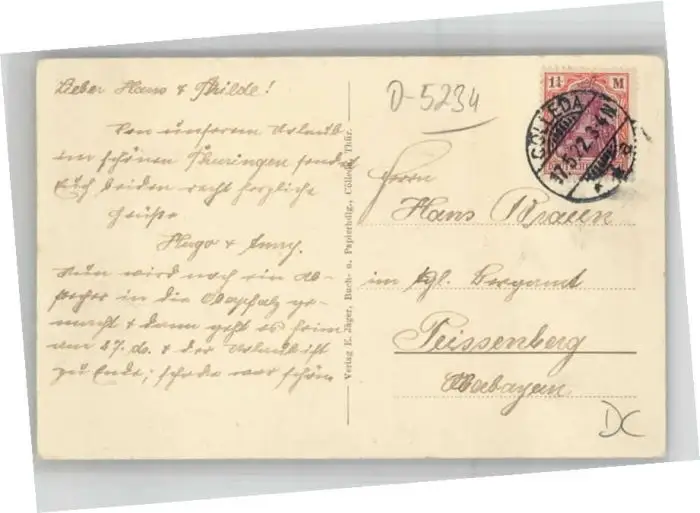 Lieber Hans & Thilde!
Von unserem Urlaub
im schönen Thüringen sendet
Euch beiden recht herzliche
Grüße
Hugo &
Nun wird noch ein Ab-
stecher in die Oberpfalz ge-
macht & dann geht es heim
am 27. ds. & der Urlaub ist
zu Ende; schade war schön
Verlag E. Jäger, Buch- u. Papierhdlg., Cölleda, Thür.
D-5234
1¼ M
CÖLLEDA
17.5.22. 3-4 N
* * a
Herrn
Hans Braun
im kgl. Bergamt
Peissenberg
Oberbayern
DC